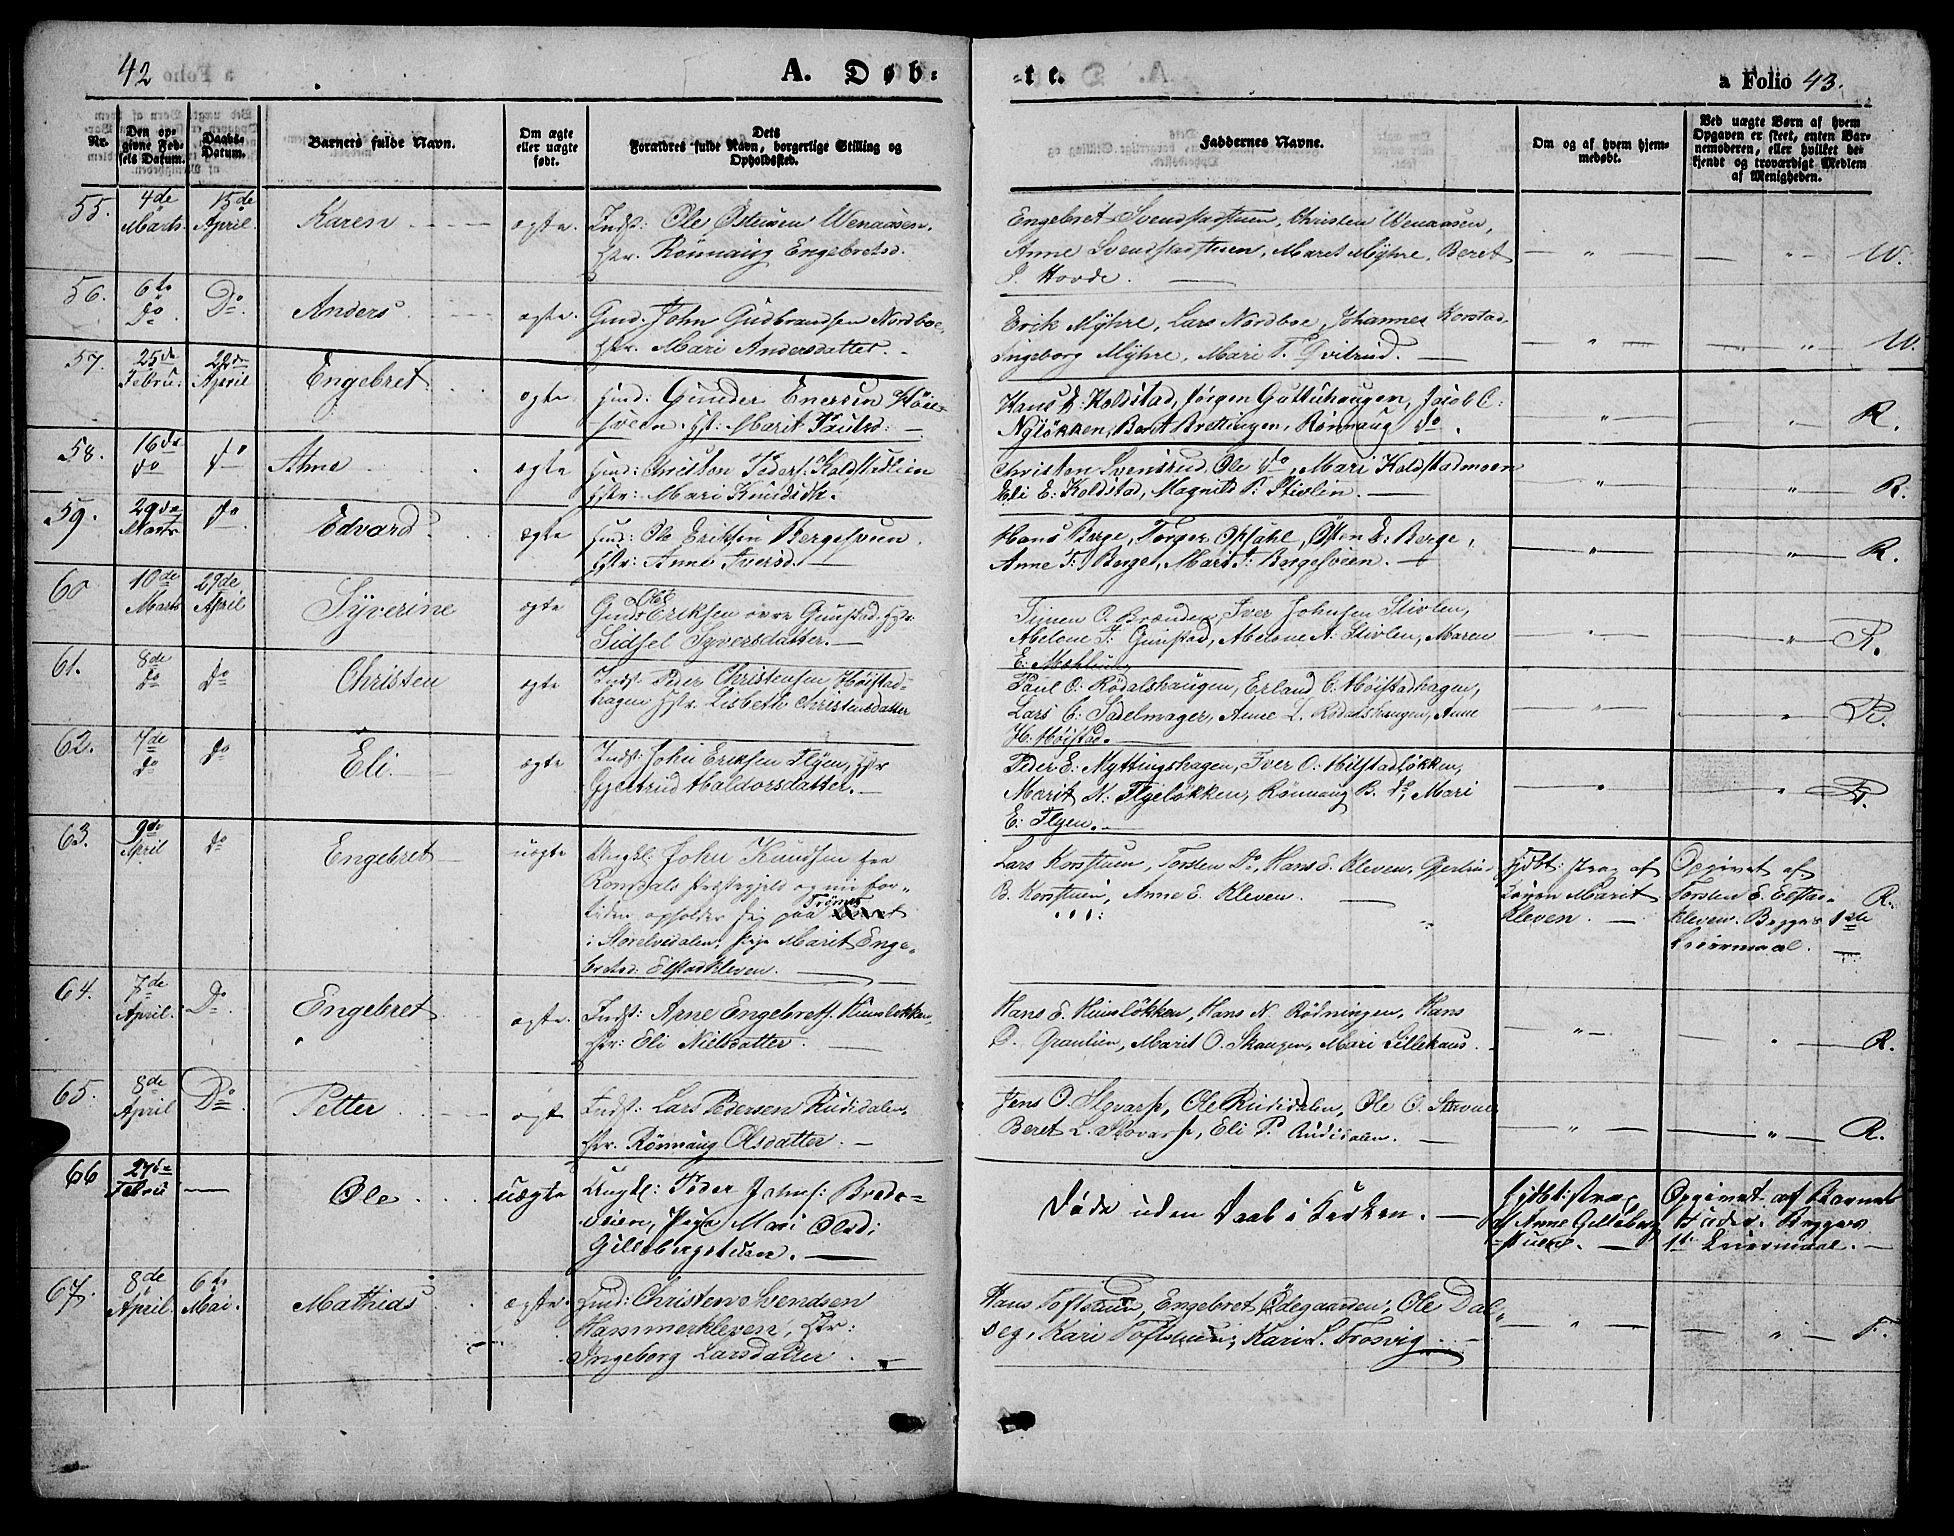 42
A. Døb=
=te.
a Folio 43.
Nr.
Den op=
givne Fød=
sels Datum.
Daabs=
Datum.
Barnets fulde Navn.
Om ægte
eller uægte
født.
Dets
Forældres fulde Navn, borgerlige Stilling og
Opholdssted.
Faddernes Navne.
Om og af hvem hjem=
medøbt.
Ved uægte Børn af hvem
Opgaven er skeet, enten Bar=
nemoderen, eller hvilket be=
kjendt og troværdigt Medlem
af Menigheden.
55. 4de Marts. 15de April. Karen ægte. Indst: Ole Østensen Wenaasen.
Hstr. Rönnaug Engebretsd.
Engebret Svendstadstuen, Christen Wenaasen,
Anne Svendstadstuen, Marit Myhre, Beret
P. Hovde. — " — — " — W.
56. 6te Do. Do. Anders ægte. Gmd. John Gudbrandsen Nordboe,
Hstr. Mari Andersdatter.
Erik Myhre, Lars Nordboe, Johannes Korstad,
Ingeborg Myhre, Mari T. Qvilrud. — " — — " — W.
57. 25de Febru. 22de April Engebret ægte Gmd: Gunder Enersen Höie=
sveen. Hst: Marit Paulsd: —
Hans E: Koldstad, Jörgen Guttuhaugen, Jacob C:
Nylökken, Berit Brettingen, Rönnaug do. " " R.
58. 16de do do Anne ægte Gmd: Christen Peders: Koldstadlien
Hstr: Mari Knudsdt.
Christen Svensrud, Ole do, Mari Koldstadmoen
Eli E: Koldstad, Magnild P: Stivlin. — " " R.
59. 29de Marts do Edvard ægte Gmd: Ole Eriksen Bergesveen.
Hstr: Anne Iversd. —
Hans Berge, Torger Opsahl, Östen E: Berge,
Anne T: Berge, Marit P: Bergesveen. — " " R.
60 10de Marts 29de April Syverine ægte Gmd: Ole Eriksen övre Gunstad. Hstr:
Sidsel Syversdatter. —
Simen O. Brænden, Iver Johnsen Stivlen,
Abelone T: Gunstad, Abelone A: Stivlen, Maren
E: " R.
61. 8de Do Do Christen ægte Indst. Peder Christensen Höistad=
hagen Hstr. Lisbeth Christensdatter
Paul O: Rödalshaugen, Erland C. Höistadhagen,
Lars C: Sadelmager, Anne L. Rödalshaugen, Anne
H: Höistad. — " " R.
62. 7de do do Eli. ægte Indst: John Eriksen Flyen, Hstr
Gjertrud Haldorsdatter. —
Peder E: Myttingshagen, Iver O: Hilstadløkken,
Marit N: Flyeløkken, Rönnaug B. do, Mari
E: Flyen. " " F.
63. 9de April do Engebret uægte Ungkl: John Knudsen fra
Romsdals Præstegjeld og nu for=
tiden opholder sig paa
i Storelvedalen, Pige Marit Enge=
bretsd: Elstadkleven. —
Lars Korstuen, Torsten Do, Hans E. Kleven,
B. Korstuen, Anne E. Kleven. —
Hjdbt: strax af
Marit
Kleven. —
Opgivet af
Torsten E. Elstad=
kleven. Begges 1ste
Leiermaal. — R.
64. 7de April. Do. Engebret ægte. Indst: Arne Engebrets. Hunsløkken,
Hstr: Eli Nielsdatter. —
Hans E. Hunsløkken, Hans N. Rödningen, Hans
O. Graulien, Marit O. Skaugen, Mari Lillehaus. — " — " R.
65. 8de April Do Petter ægte Indst: Lars Pedersen Rudidalen,
Hstr. Rönnaug Olsdatter. —
Jens O. Stovarp, Ole Rudidalen, Ole O. Stavne
Beret L. Stovarp, Eli P. Rudidalen. — " — — " — R.
66 27de Febru — Ole uægte Ungkl: Peder Johns: Brede=
veien, Pige Mari Olsd:
Gillebergstuen. —
Døde uden Daab i Kirken. —
Hjdbt: strax
af Anne Gilleberg=
stuen. —
Opgivet af Barnets
Fader. Begges
1ste Leiermaal. —
67. 8de April. 6te Mai. Mathias ægte. Gmd: Christen Svendsen
Hammerkleven, Hstr:
Ingeborg Larsdatter. —
Hans Toftstuen, Engebret Ødegaarden, Ole Dal=
seg, Kari Toftstuen, Kari L. Trosvig. — " — — " — F.